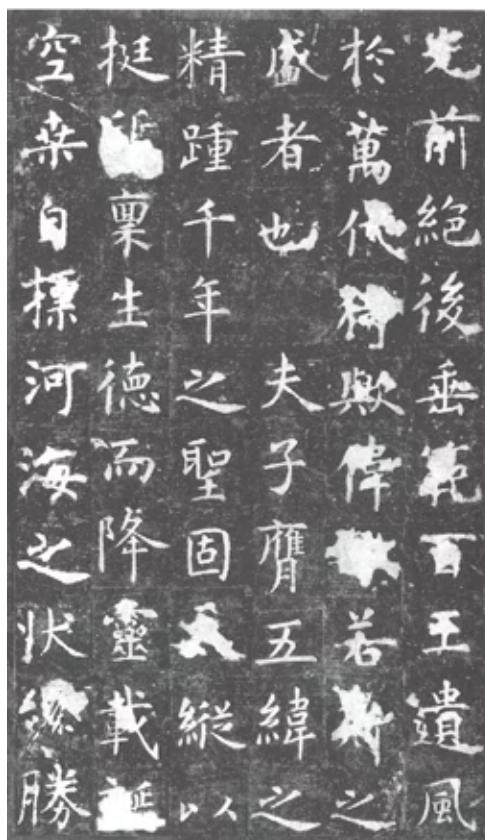 光前絕後垂範百王遺風
於萬代猗歟偉若斯之
盛者也 夫子膺五緯之
精踵千年之聖固天縱以
挺稟生德而降靈載誕
空桒自摽河海之狀纔勝